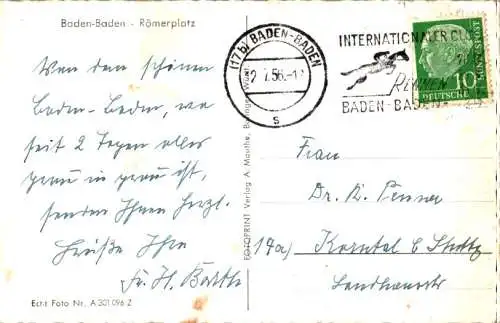 Baden-Baden - Römerplatz
Von dem schönen
Baden-Baden, wo
seit 2 Tagen alles
grau in grau ist,
senden Ihnen herzl.
Grüße Ihre
Fr. H. Barth
Echt Foto Nr. A 301 096 Z
FOTOPRINT Verlag A. Mauthe, Balingen Württ.
(17b) BADEN-BADEN
2.7.56.-1
s
INTERNATIONALER CLUB
RENNEN
BADEN-BADEN
10
DEUTSCHE BUNDESPOST
Frau
Dr. K. Penner
14a) Korntal b/ Stuttg.